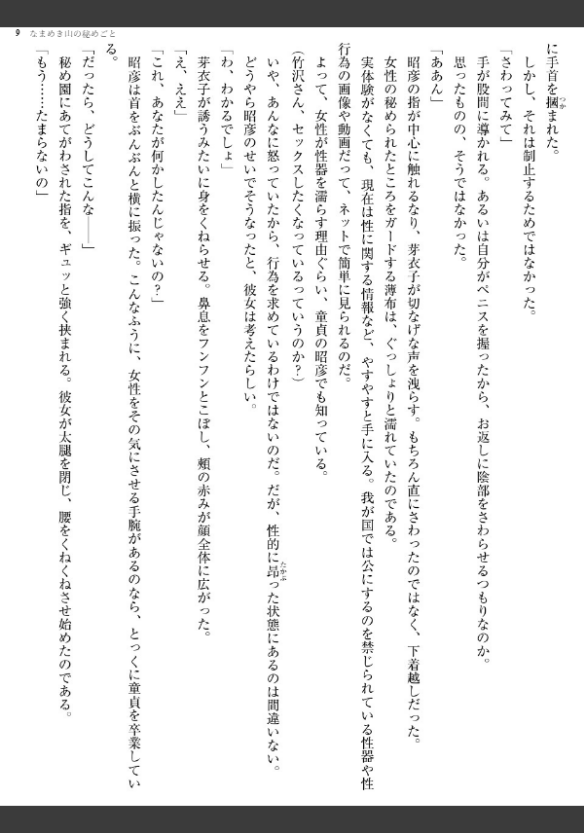 9 なまめき山の秘めごと
に手首を摑まれた。
しかし、それは制止するためではなかった。
「さわってみて」
手が股間に導かれる。あるいは自分がペニスを握ったから、お返しに陰部をさわらせるつもりなのか。
思ったものの、そうではなかった。
「ああん」
昭彦の指が中心に触れるなり、芽衣子が切なげな声を洩らす。もちろん直にさわったのではなく、下着越しだった。
女性の秘められたところをガードする薄布は、ぐっしょりと濡れていたのである。
実体験がなくても、現在は性に関する情報など、やすやすと手に入る。我が国では公にするのを禁じられている性器や性
行為の画像や動画だって、ネットで簡単に見られるのだ。
よって、女性が性器を濡らす理由ぐらい、童貞の昭彦でも知っている。
(竹沢さん、セックスしたくなっているっていうのか?)
いや、あんなに怒っていたから、行為を求めているわけではないのだ。だが、性的に昂った状態にあるのは間違いない。
どうやら昭彦のせいでそうなったと、彼女は考えたらしい。
「わ、わかるでしょ」
芽衣子が誘うみたいに身をくねらせる。鼻息をフンフンとこぼし、頰の赤みが顔全体に広がった。
「え、ええ」
「これ、あなたが何かしたんじゃないの?」
昭彦は首をぶんぶんと横に振った。こんなふうに、女性をその気にさせる手腕があるのなら、とっくに童貞を卒業してい
る。
「だったら、どうしてこんな――」
秘め園にあてがわされた指を、ギュッと強く挟まれる。彼女が太腿を閉じ、腰をくねくねさせ始めたのである。
「もう……たまらないの」